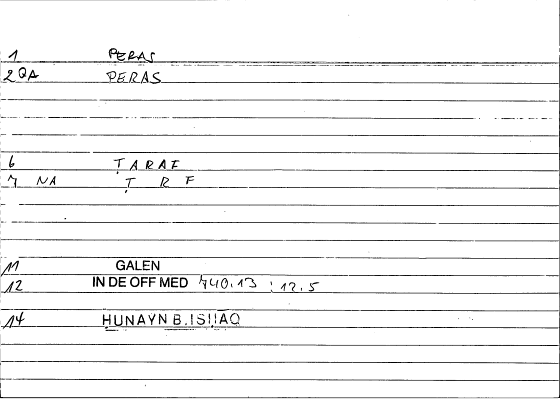 1 PERAS
2 QA PERAS
6 ṬARAF
7 NA Ṭ R F
11 GALEN
12 IN DE OFF MED 740.13 : 12.5
14 HUNAYN B. ISḤAQ